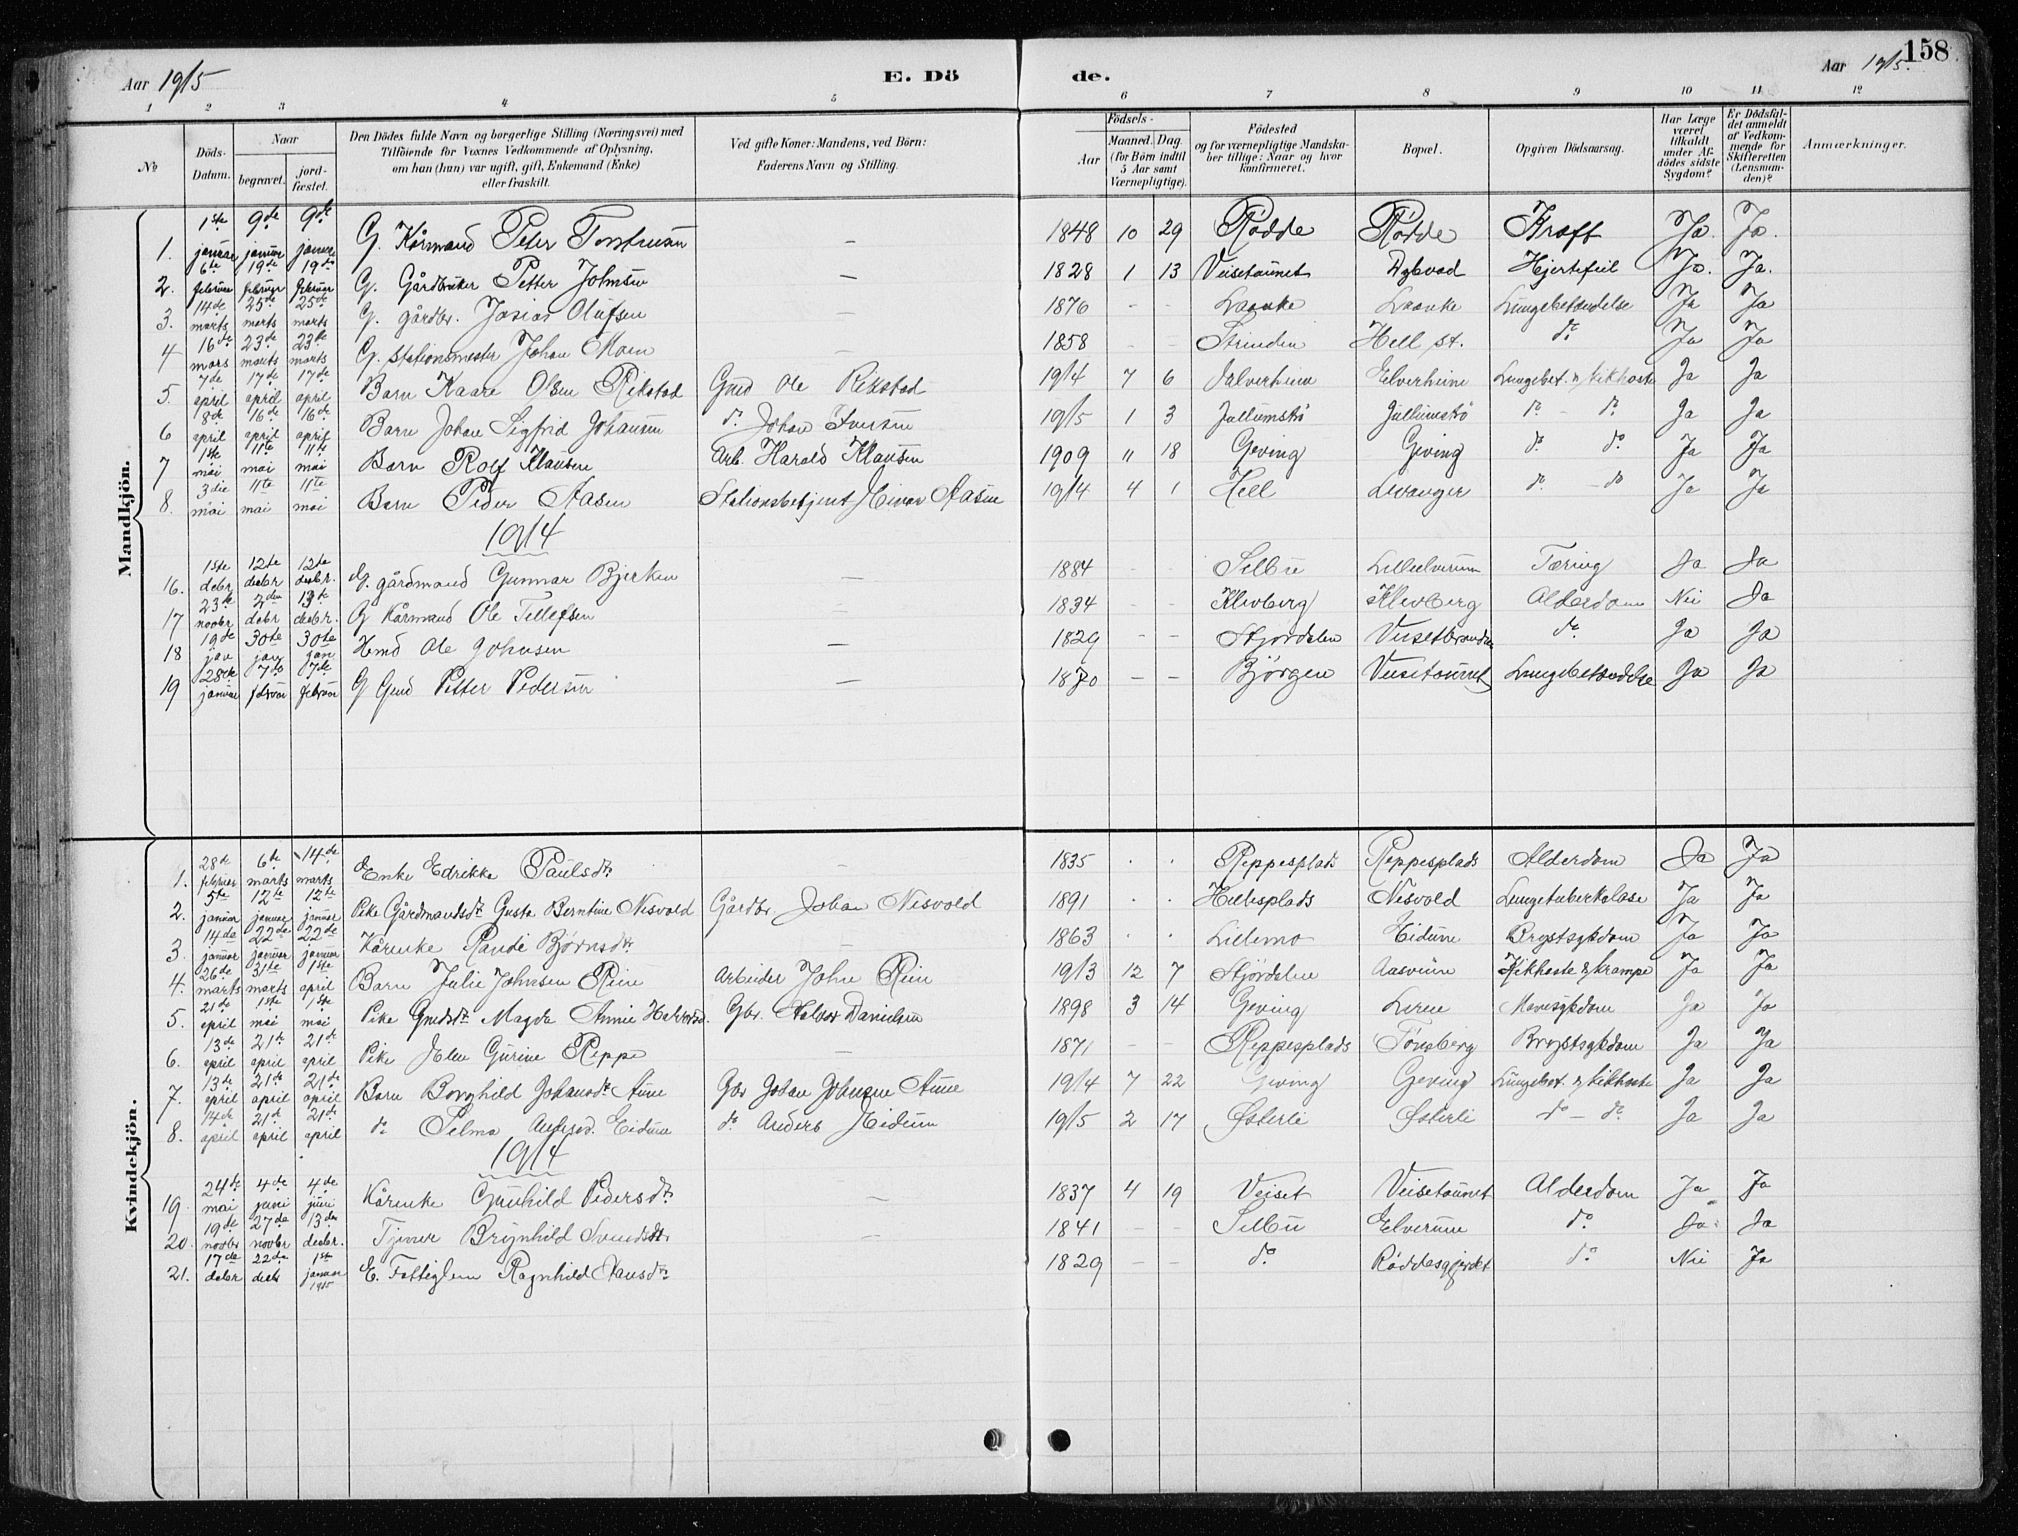 158
Aar 1915
E. Dö
de.
Aar 1915.
1 2 3 4 5 6 7 8 9 10 11 12
No
Döds-Datum.
Naar
begravet.
jord-fæstet.
Den Dödes fulde Navn og borgerlige Stilling (Næringsvei) med
Tilföiende for Voxnes Vedkommende af Oplysning,
om han (hun) var ugift, gift, Enkemand (Enke)
eller fraskilt.
Ved gifte Koner: Mandens, ved Börn:
Faderens Navn og Stilling.
Födsels-
Aar
Maaned. Dag
(for Börn indtil
5 Aar samt
Værnepligtige).
Födested
og for værnepligtige Mandska-
ber tillige: Naar og hvor
konfirmeret.
Bopæl.
Opgiven Dödsaarsag.
Har Læge
været
tilkaldt
under Af-
dödes sidste
Sygdom?
Er Dödsfal-
det anmeldt
af Vedkom-
mende for
Skifteretten
(Lensman-
den)?
Anmærkninger.
Mandkjön.
1. 1ste januar 9de januar 9de januar G. Kårmand Peter — 1848 10 29 Rødde Rødde Kræft Ja. Ja.
2. 6te februar 19de februar 19de februar G. Gårdbruker Petter Johnsen — 1828 1 13 Veisetaunet Dybvad Hjertefeil Ja. Ja.
3. 14de marts 25de marts 25de marts G. gårdbr. Josias Olufsen — 1876 - - Laanke Laanke Lungebetændelse Ja Ja
4 16de mars 23de marts 23de marts G. Stationsmester Johan Moen — 1858 - - Strinden Hell st. do Ja Ja
5. 7de april 17de april 17de april Barn Kaare Olsen Rikstad Gmd Ole Rikstad 1914 7 6 Elverheim Lungebet. & kikhoste Ja Ja
6 8de april 16de april 16de april Barn Johan Sigfrid Johansen do Johan Iversen 1915 1 3 Jullumstrø Jullumstrø do - do Ja Ja
7 1ste mai 11te mai 11te mai Barn Rolf Klausen Arb. Harald Klausen 1909 11 18 Geving Geving do do Ja Ja
8. 3die mai 11te mai 11te mai Barn Peder Aasen Stationsbetjent Aasen 1914 4 1 Hell Levanger do - do Ja Ja
1914
16. 1ste debr 12te desbr 12te desbr. G. gårdmand Gunnar Bjerken — 1884 Selbu Lilleelverum Tæring Ja Ja
17 23de novbr 2den debr 13de desbr. G Kårmand Ole Tellefsen 1834 - - Klevberg Klevberg Alderdom Nei Ja
18 19de jan 30te jan 30te jan Hmd Ole Johnsen — 1829 - - Stjørdalen do. Ja Ja
19 28de januar 7de februar 7de februar G Gmd Petter Pedersen — 1870 - - Bjørgen Veisetaunet Lungebetændelse Ja Ja
Kvindekjön.
1. 28de februar 6te marts 14de marts Enke Edrikke Paulsdtr — 1835 . . Reppesplads Reppesplads Alderdom Ja Ja
2. 5te januar 12te januar 12te januar Pike Gårdmandsdtr Gusta Berntine Nesvold Gårdbr Johan Nesvold 1891 . . Nesvold Lungetuberkolose Ja Ja
3. 14de januar 22de januar 22de januar Kårenke Randi Bjørnsdtr — 1863 . . Lillemo Eidum Brystsykdom Ja Ja
4. 26de marts 31te marts 1ste april Barn Julie Johnsen Rein Arbeider John Rein 1913 12 7 Stjørdalen Aasvein Kikhoste & krampe Ja Ja
5. 21de april 1ste mai 1ste mai Pike Gmdsdtr Magda Annie Halvorsd. Gbr. Halvor Danielsen 1898 3 14 Geving Leren Mavesykdom Ja Ja
6. 13de april 21de april 21de april Pike Elen Gurine Reppe — 1871 - - Reppesplads Tønsberg Brystsykdom Ja Ja
7. 13de april 21de april 21de april Barn Borghild Johansdtr Aune Gbr Johan Johnsen Aune 1914 7 22 Geving Geving Lungebet. & kikhoste Ja Ja
8. 14de april 21de april 21de april do Selma Andersd. Eidum do Anders Eidum 1915 2 17 Østerli Østerli do - do Ja Ja
1914
19. 24de mai 4de juni 4de juni Kårenke Gunhild Pedersdtr — 1837 4 19 Veiset Veisetaunet Alderdom Ja Ja
20. 19de novbr 27de novbr 13de desbr. Brynhild Svendsdtr — 1841 - - Selbu Elverum do Ja Ja
21. 17de debr 22de 1ste januar 1915 E. Fattiglem Ragnhild Hansdtr 1829 - - do Røddesgjerdet do Nei Ja